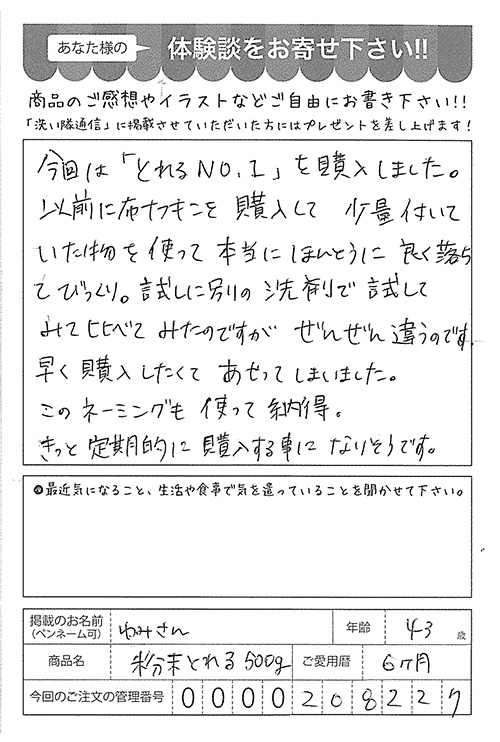 あなた様の 体験談をお寄せ下さい!!
商品のご感想やイラストなどご自由にお書き下さい!!
「洗い隊通信」に掲載させていただいた方にはプレゼントを差し上げます!
今回は「とれるNO.1」を購入しました。
以前に布ナフキンを購入して 少量付いて
いた物を使って本当にほんとうに良く落ち
てびっくり。試しに別の洗剤で試して
みて比べてみたのですが ぜんぜん違うのです
早く購入したくてあせってしまいました。
このネーミングも使って納得。
きっと定期的に購入する事になりそうです。
●最近気になること、生活や食事で気を遣っていることを聞かせて下さい。
掲載のお名前 (ペンネーム可) ゆみさん 年齢 43歳
商品名 粉末とれる500g ご愛用暦 6ヶ月
今回のご注文の管理番号 0000208227